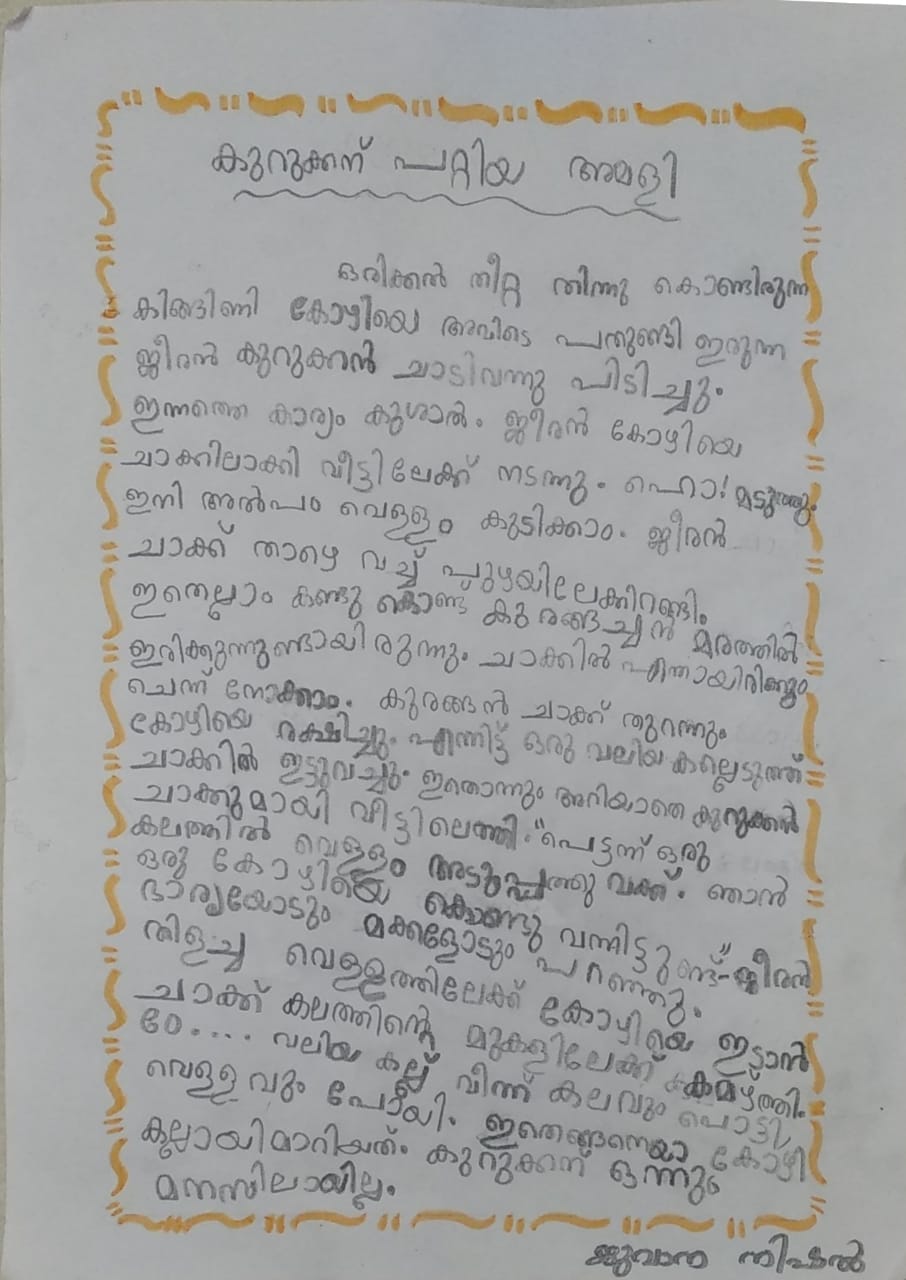 കുറുക്കന് പറ്റിയ അമളി
ഒരിക്കൽ തീറ്റ തിന്നു കൊണ്ടിരുന്ന
കിങ്ങിണി കോഴിയെ അവിടെ പതുങ്ങി ഇരുന്ന
ജീരൻ കുറുക്കൻ ചാടിവന്നു പിടിച്ചു.
ഇന്നത്തെ കാര്യം കുശാൽ. ജീരൻ കോഴിയെ
ചാക്കിലാക്കി വീട്ടിലേക്ക് നടന്നു. ഹൊ! മടുത്തു.
ഇനി അൽപം വെള്ളം കുടിക്കാം. ജീരൻ
ചാക്ക് താഴെ വച്ച് പുഴയിലേക്കിറങ്ങി.
ഇതെല്ലാം കണ്ടു കൊണ്ട് കുരങ്ങച്ചൻ മരത്തിൽ
ഇരിക്കുന്നുണ്ടായിരുന്നു. ചാക്കിൽ എന്തായിരിക്കും
ചെന്ന് നോക്കാം. കുരങ്ങൻ ചാക്ക് തുറന്നു
കോഴിയെ രക്ഷിച്ചു. എന്നിട്ട് ഒരു വലിയ കല്ലെടുത്ത്
ചാക്കിൽ ഇട്ടുവച്ചു. ഇതൊന്നും അറിയാതെ കുറുക്കൻ
ചാക്കുമായി വീട്ടിലെത്തി. "പെട്ടന്ന് ഒരു
കലത്തിൽ വെള്ളം അടുപ്പത്തു വക്ക്. ഞാൻ
ഒരു കോഴിയെ കൊണ്ടു വന്നിട്ടുണ്ട്"- ജീരൻ
ഭാര്യയോടും മക്കളോടും പറഞ്ഞു.
തിളച്ച വെള്ളത്തിലേക്ക് കോഴിയെ ഇടാൻ
ചാക്ക് കലത്തിന്റെ മുകളിലേക്ക് കമഴ്ത്തി.
ഠോ.... വലിയ കല്ല് വീന്ന് കലവും പൊട്ടി,
വെള്ളവും പോയി. ഇതെങ്ങനെയാ കോഴി
കല്ലായിമാറിയത്. കുറുക്കന് ഒന്നും
മനസിലായില്ല.
ജുവാന നിഷാൽ